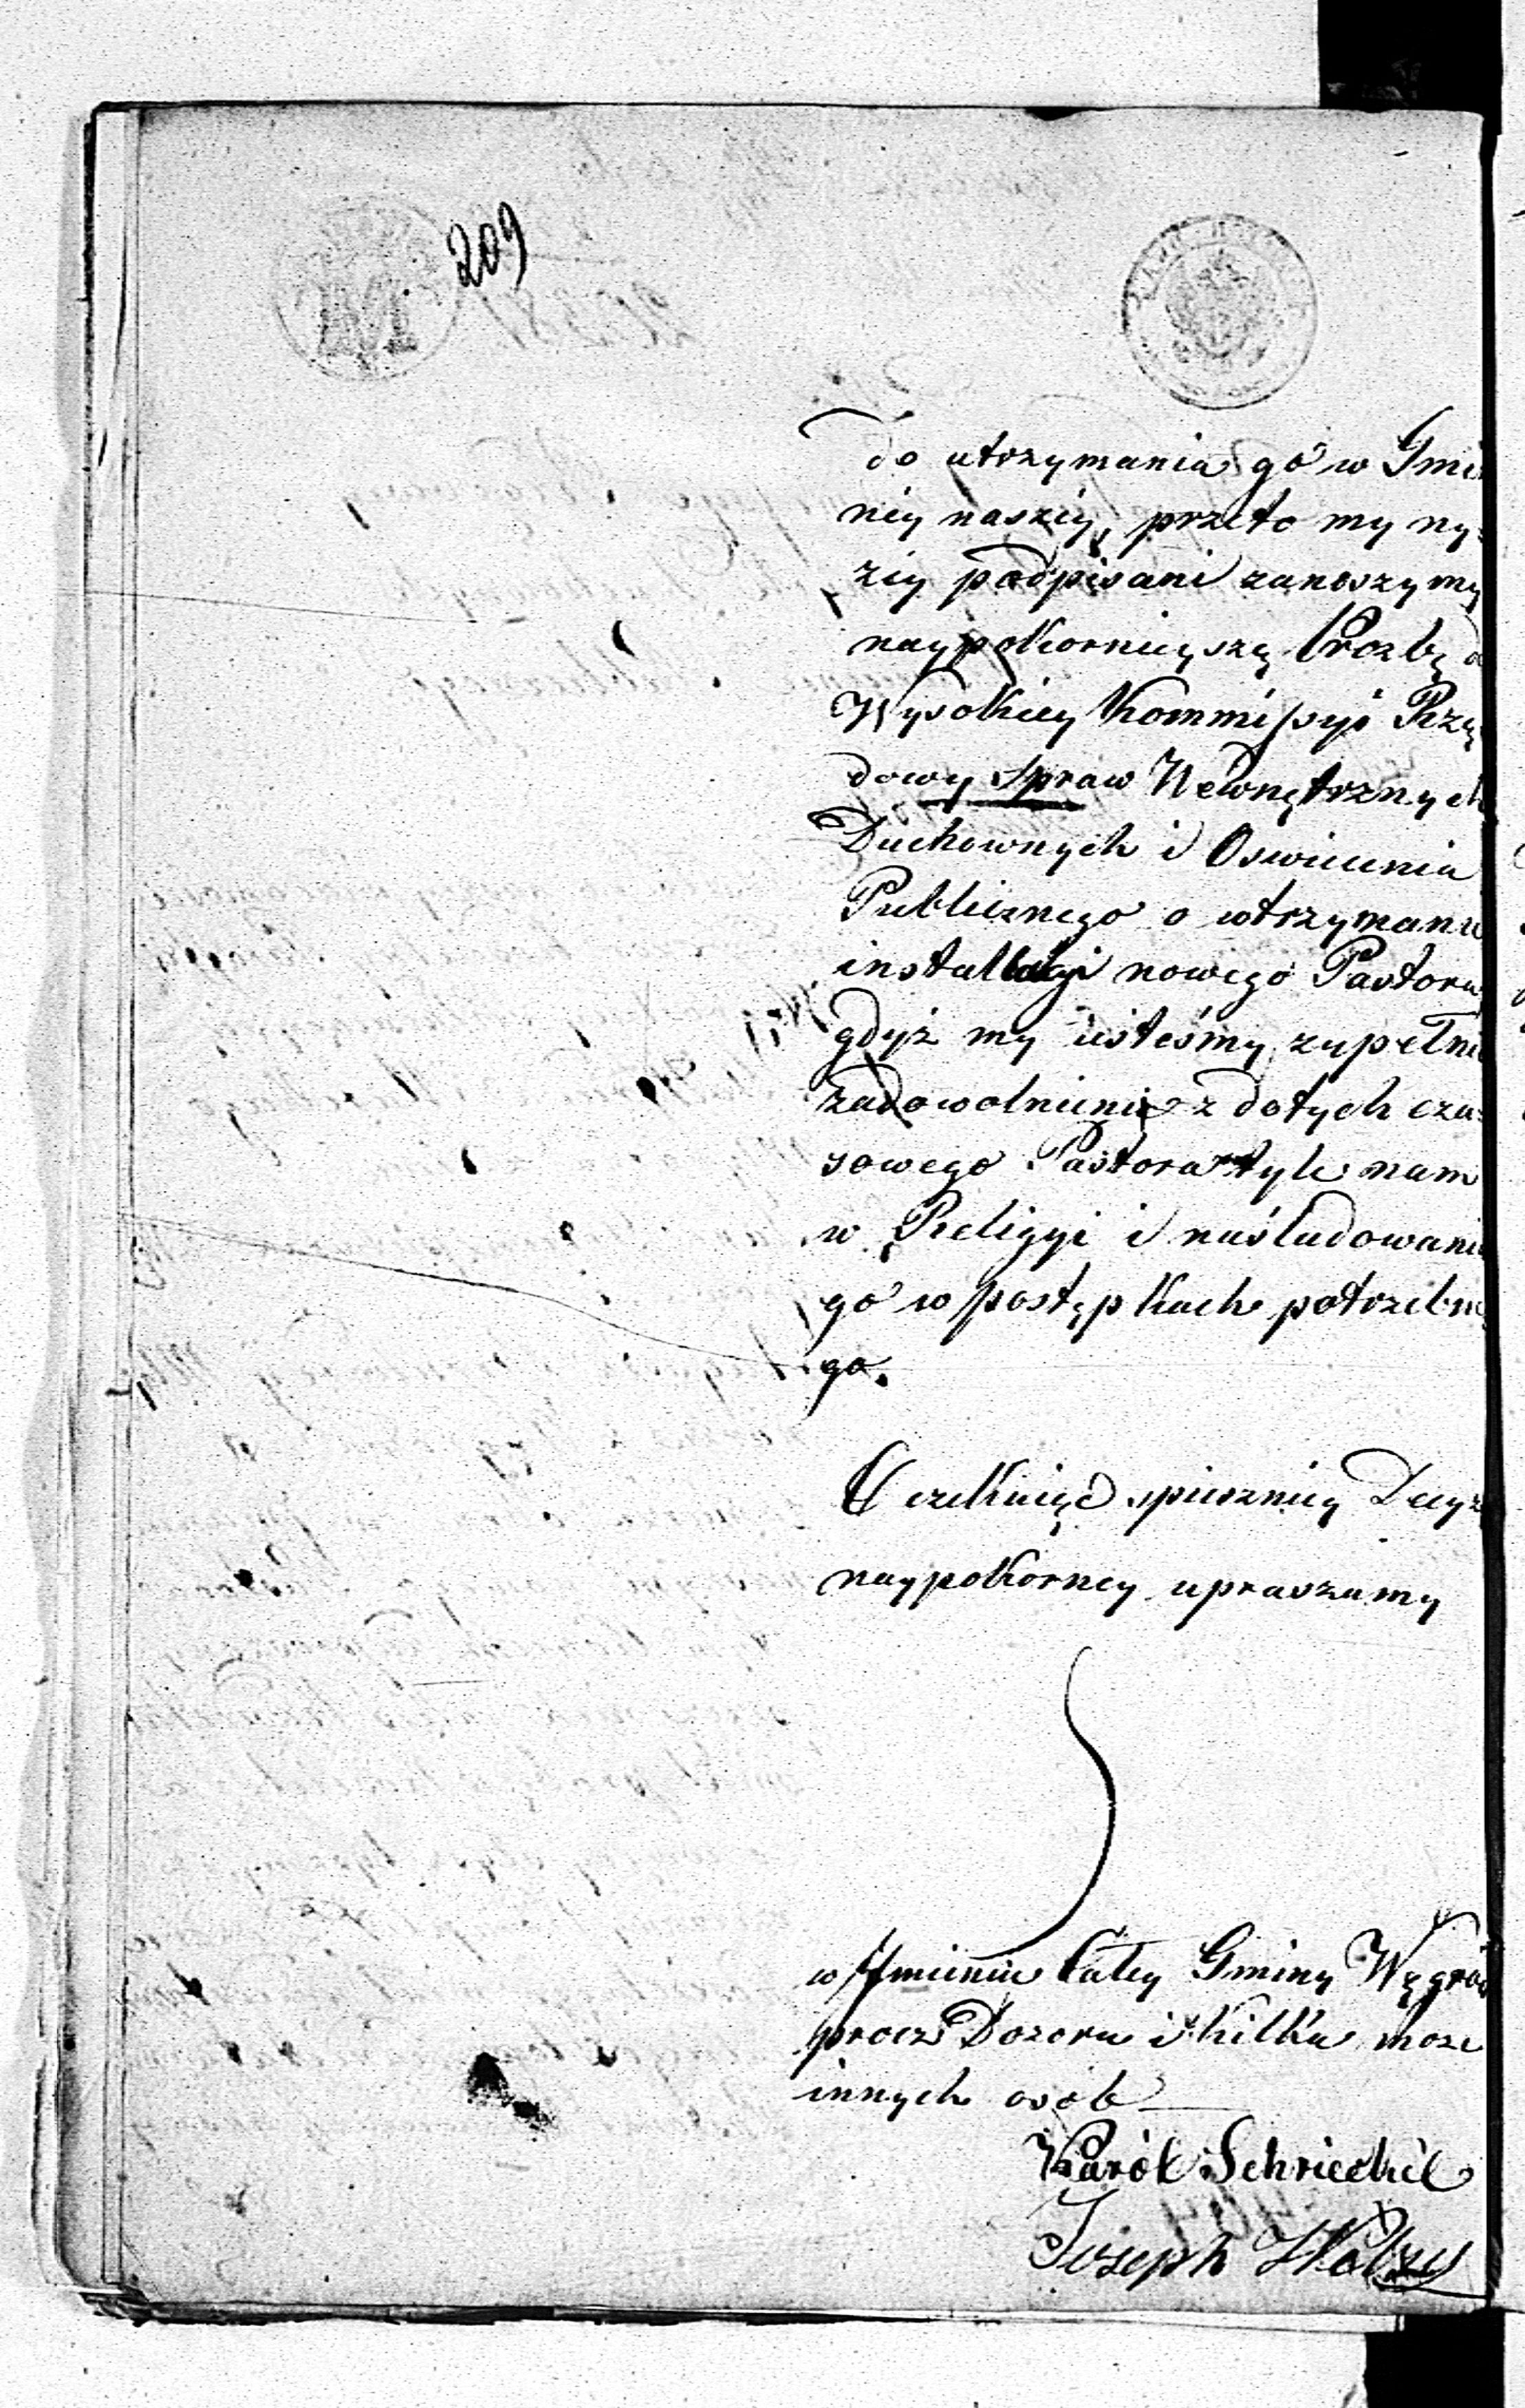 209
do utrzymania go w Gmi
niy naszéy, przeto my ny=
zéy podpisani zanoszymy
naypokornieyszą Prozbę d
Wysokiey Kommissyi Rzą
dowy Spraw Wewnętrznych
Duchownych i Oswiecenia
Publicznego o wtrzymanie
installacyi nowego Pastora
gdyż my iesteśmy zupełnie
zadowolnieni z dotych cza=
sowego Pastora tyle nam
w Religyi i naśladowaniu
go w postępkach potrzebne
go.
Oczekuiąc spieszney Decyz
naypokorney upraszamy
w Jmieniu Całey Gminy Węgrów
procz Dozoru i kilku moze
innych osób
Karól
Jozeph